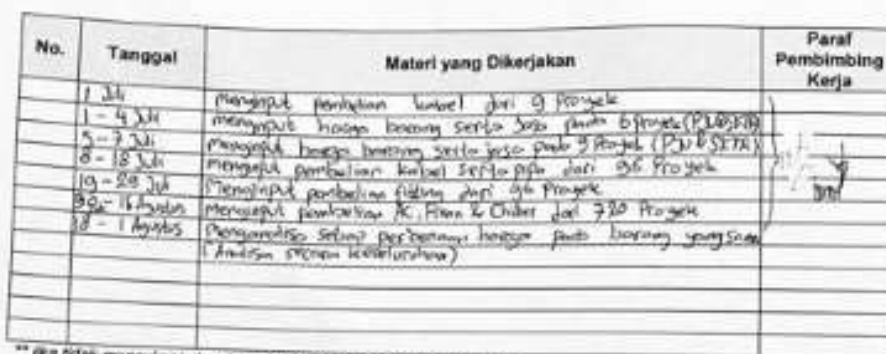 No. Tanggal Materi yang Dikerjakan Paraf Pembimbing Kerja
1 Juli Menginput pembelian kabel dari 9 Proyek
1 - 4 Juli Menginput harga barang serta jasa pada 6 Proyek
5 - 7 Juli Menginput harga barang serta jasa pada 9 Proyek
8 - 18 Juli Menginput pembelian kabel serta pipa dari 96 Proyek
19 - 29 Juli Menginput pembelian fitting dari 96 Proyek
16 Agustus Menginput pembelian AC, & dari 720 Proyek
1 Agustus Menganalisa setiap harga pada barang yang sama
(Analisa secara keseluruhan)
** tidak